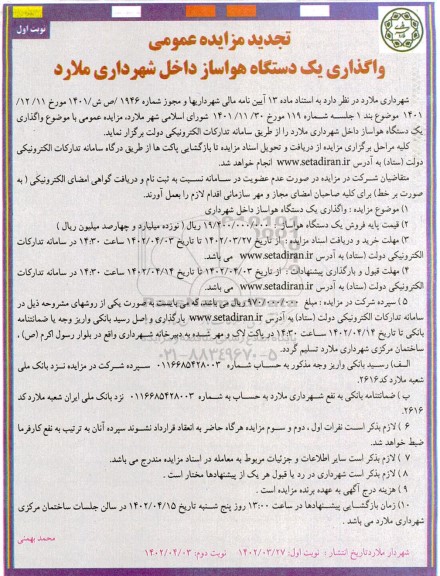 نوبت اول
تجدید مزایده عمومی
واگذاری یک دستگاه هواساز داخل شهرداری ملارد
شهرداری ملارد در نظر دارد به استناد ماده ۱۳ آیین نامه مالی شهرداریها و مجوز شماره ۱۹۴۶ /ص ش/۱۴۰۱ مورخ ۱۱/ ۱۲/
۱۴۰۱ موضوع بند ۱ جلسه شماره ۱۱۹ مورخ ۳۰/ ۱۱/ ۱۴۰۱ شورای اسلامی شهر ملارد، مزایده عمومی با موضوع واگذاری
یک دستگاه هواساز داخل شهرداری ملارد را از طریق سامانه تدارکات الکترونیکی دولت برگزار نماید.
کلیه مراحل برگزاری مزایده از دریافت و تحویل اسناد مزایده تا بازگشایی پاکت ها از طریق درگاه سامانه تدارکات الکترونیکی
دولت (ستاد) به آدرس www.setadiran.ir انجام خواهد شد.
متقاضیان شرکت در مزایده در صورت عدم عضویت در سامانه نسبت به ثبت نام و دریافت گواهی امضای الکترونیکی ( به
صورت بر خط) برای کلیه صاحبان امضای مجاز و مهر سازمانی اقدام لازم را بعمل آورند.
۱) موضوع مزایده : واگذاری یک دستگاه هواساز داخل شهرداری
۲) قیمت پایه فروش یک دستگاه هواساز : ۱۹/۴۰۰/۰۰۰/۰۰۰ ریال ( نوزده میلیارد و چهارصد میلیون ریال )
۳) مهلت خرید و دریافت اسناد مزایده : از تاریخ ۱۴۰۲/۰۳/۲۷ تا تاریخ ۱۴۰۲/۰۴/۰۳ ساعت ۱۴:۳۰ در سامانه تدارکات
الکترونیکی دولت (ستاد) به آدرس www.setadiran.ir می باشد.
۴) مهلت قبول و بارگذاری پیشنهادات : از تاریخ ۱۴۰۲/۰۴/۰۳ تا تاریخ ۱۴۰۲/۰۴/۱۴ ساعت ۱۴:۳۰ در سامانه تدارکات
الکترونیکی دولت (ستاد) به آدرس www.setadiran.ir می باشد.
۵) سپرده شرکت در مزایده : مبلغ ۹۷۰/۰۰۰/۰۰۰ ریال می باشد که می بایست به صورت یکی از روشهای مشروحه ذیل در
سامانه تدارکات الکترونیکی دولت (ستاد) به آدرس www.setadiran.ir بارگذاری و اصل رسید بانکی واریز وجه یا ضمانتنامه
بانکی تا تاریخ ۱۴۰۲/۰۴/۱۴ ساعت ۱۴:۳۰ در پاکت لاک و مهر شده به دبیرخانه شهرداری واقع در بلوار رسول اکرم (ص) ،
ساختمان مرکزی شهرداری ملارد تسلیم گردد.
الف) رسید بانکی واریز وجه مذکور به حساب شماره ۰۱۱۶۶۸۵۴۲۸۰۰۳ سپرده شرکت در مزایده نزد بانک ملی
شعبه ملارد کد۲۶۱۶.
ب ) ضمانتنامه بانکی به نفع شهرداری ملارد به حساب به شماره ۰۱۱۶۶۸۵۴۲۸۰۰۳ نزد بانک ملی ایران شعبه ملارد کد
۲۶۱۶.
۶ ) لازم بذکر است نفرات اول ، دوم و سوم مزایده هرگاه حاضر به انعقاد قرارداد نشوند سپرده آنان به ترتیب به نفع کارفرما
ضبط خواهد شد.
۷ ) لازم بذکر است سایر اطلاعات و جزئیات مربوط به معامله در اسناد مزایده مندرج می باشد.
۸ ) لازم بذکر است شهرداری در رد یا قبول هر یک از پیشنهادها مختار است .
۹ ) هزینه درج آگهی به عهده برنده مزایده است .
۱۰) زمان بازگشایی پیشنهادها در ساعت ۱۳:۰۰ روز پنج شنبه تاریخ ۱۴۰۲/۰۴/۱۵ در سالن جلسات ساختمان مرکزی
شهرداری ملارد می باشد .
محمد بهمنی
شهردار ملارد تاریخ انتشار : نوبت اول: ۱۴۰۲/۰۳/۲۷ نوبت دوم: ۱۴۰۲/۰۴/۰۳
۰۲۱-۸۸۳۴۹۶۷۰-۵